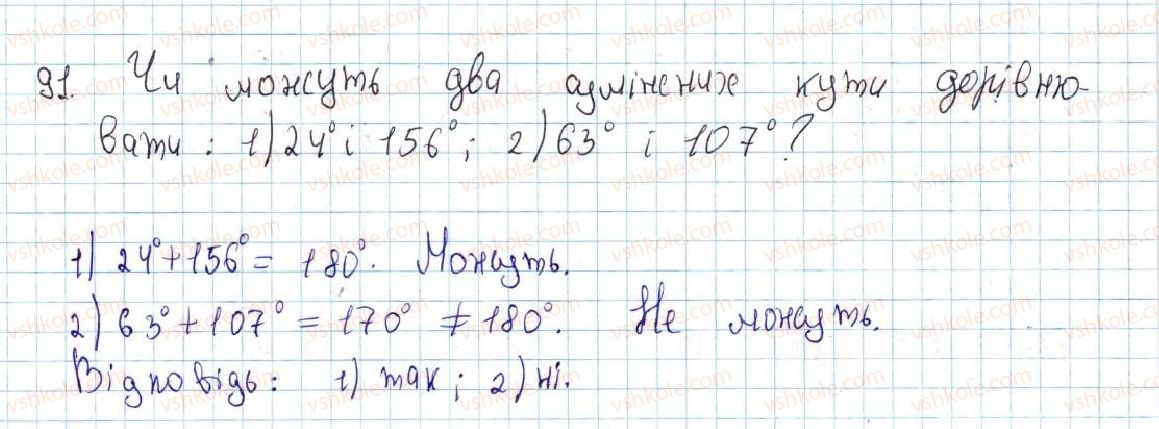 91. Чи можуть два суміжних кути дорівню-
вати: 1) 24° і 156°; 2) 63° і 107°?
1) 24° + 156° = 180°. Можуть.
2) 63° + 107° = 170° ≠ 180°. Не можуть.
Відповідь: 1) так; 2) ні.